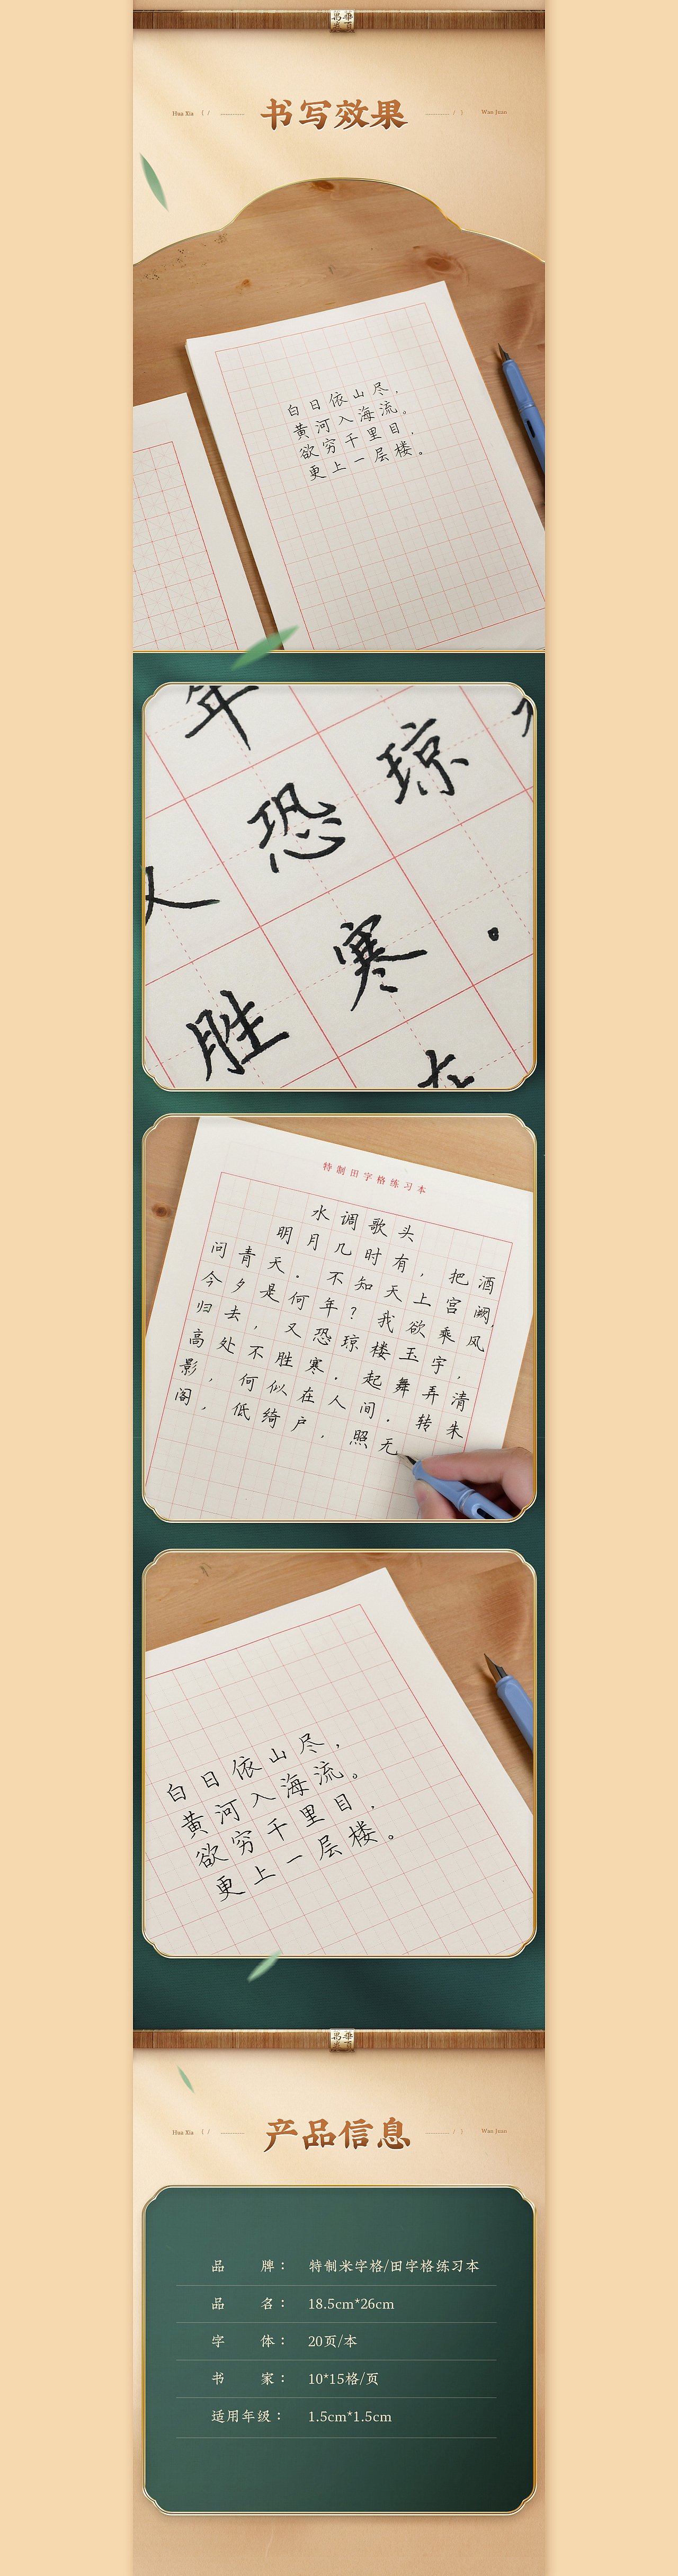 Hua Xia
书写效果
Wan Juan
白日依山尽，
黄河入海流。
欲穷千里目，
更上一层楼。
年
恐琼
人
寒。
胜
在
特制田字格练习本
水调歌头
明月几时有，把酒
问青天。不知天上宫阙，
今夕是何年？我欲乘风
归去，又恐琼楼玉宇，
高处不胜寒。起舞弄清
影，何似在人间。转朱
阁，低绮户，照无
白日依山尽，
黄河入海流。
欲穷千里目，
更上一层楼。
Hua Xia
产品信息
Wan Juan
品牌：特制米字格/田字格练习本
品名：18.5cm*26cm
字体：20页/本
书家：10*15格/页
适用年级：1.5cm*1.5cm